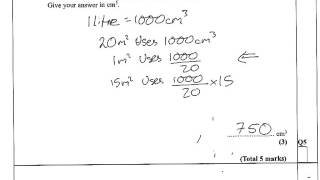 Give your answer in cm³.
1 litre = 1000cm³
20m² uses 1000cm³
1m² uses 1000/20 ⇐
15m² uses 1000/20 × 15
750 cm³
(3) Q5
(Total 5 marks)